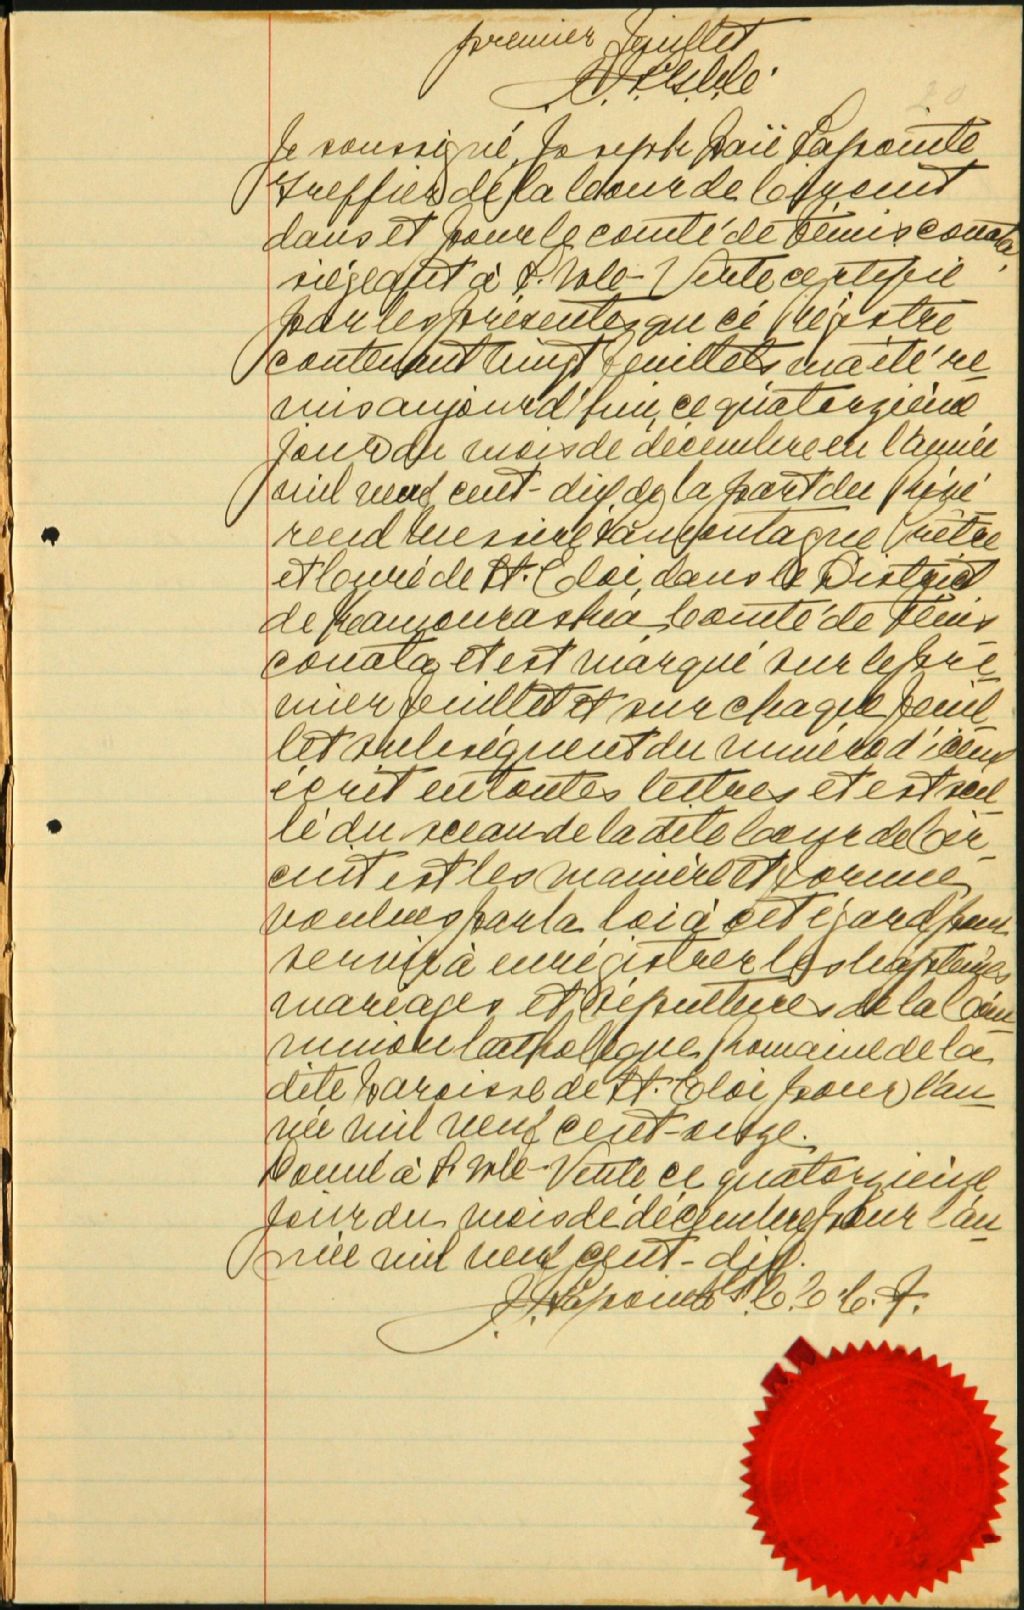 premier feuillet
Je soussigné, Joseph Lapointe
Greffier de la Cour de Circuit
dans et pour le comté de Témisconata
siégeant à l'Isle-Verte certifie
par les présentes que ce Régistre
contenant vingt feuillets m'a été re_
mis aujourd'hui, ce quatorzième
jour du mois de décembre en l'année
mil neuf cent-dix de la part du Révé
rend Messire Lamontagne Prêtre
et Curé de St. Eloi, dans le District
de Kamouraska, Comté de Témis
couata, et est marqué sur le pre_
mier feuillet et sur chaque feuil_
let subséquent du numéro d'iceux
écrit en toutes lettres et est scel_
lé du sceau de la dite Cour de Cir_
cuit est les manière et forme
voulues par la loi à cet égard pour
servir à enrégistrer les baptêmes
mariages et sépultures de la Com_
munion Catholique Romaine de la
dite paroisse de St. Eloi pour l'an_
née mil neuf cent-onze.
Donné à l'Isle-Verte ce quatorzième
jour du mois de décembre pour l'an_
née mil neuf cent-dix.
J. Lapointe